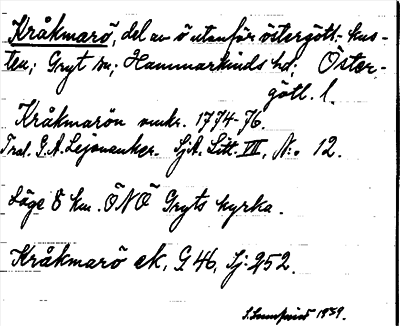 Kråkmarö, del av ö utanför östergött. kus-
ten; Gryt sn; Hammarkinds hd; Öster-
götl. l.
Kråkmarön omkr. 1774-76.
Trol. G.A. Lejonanker. SjA. Litt. VII, No. 12.
Läge 8 km. ÖNÖ Gryts kyrka.
Kråkmarö ek, G 46, Sj: 252.
1939.